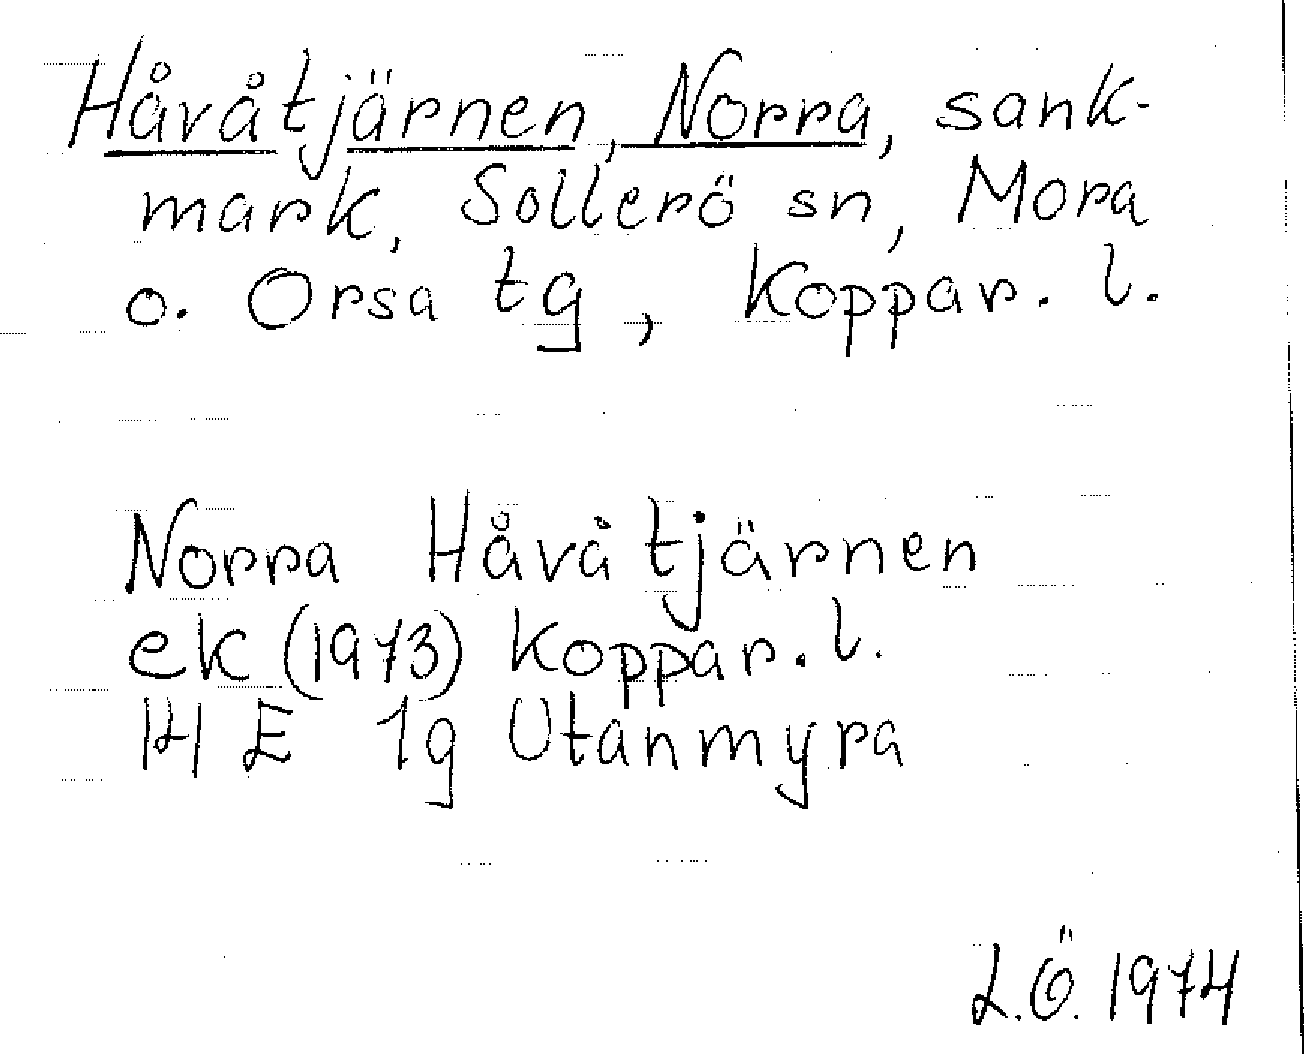 Håvåtjärnen, Norra, sank-
mark, Sollerö sn, Mora
o. Orsa tg, Koppar. l.
Norra Håvåtjärnen
ek (1973) Koppar. l.
14 E 1g Utanmyra
L.Ö. 1974